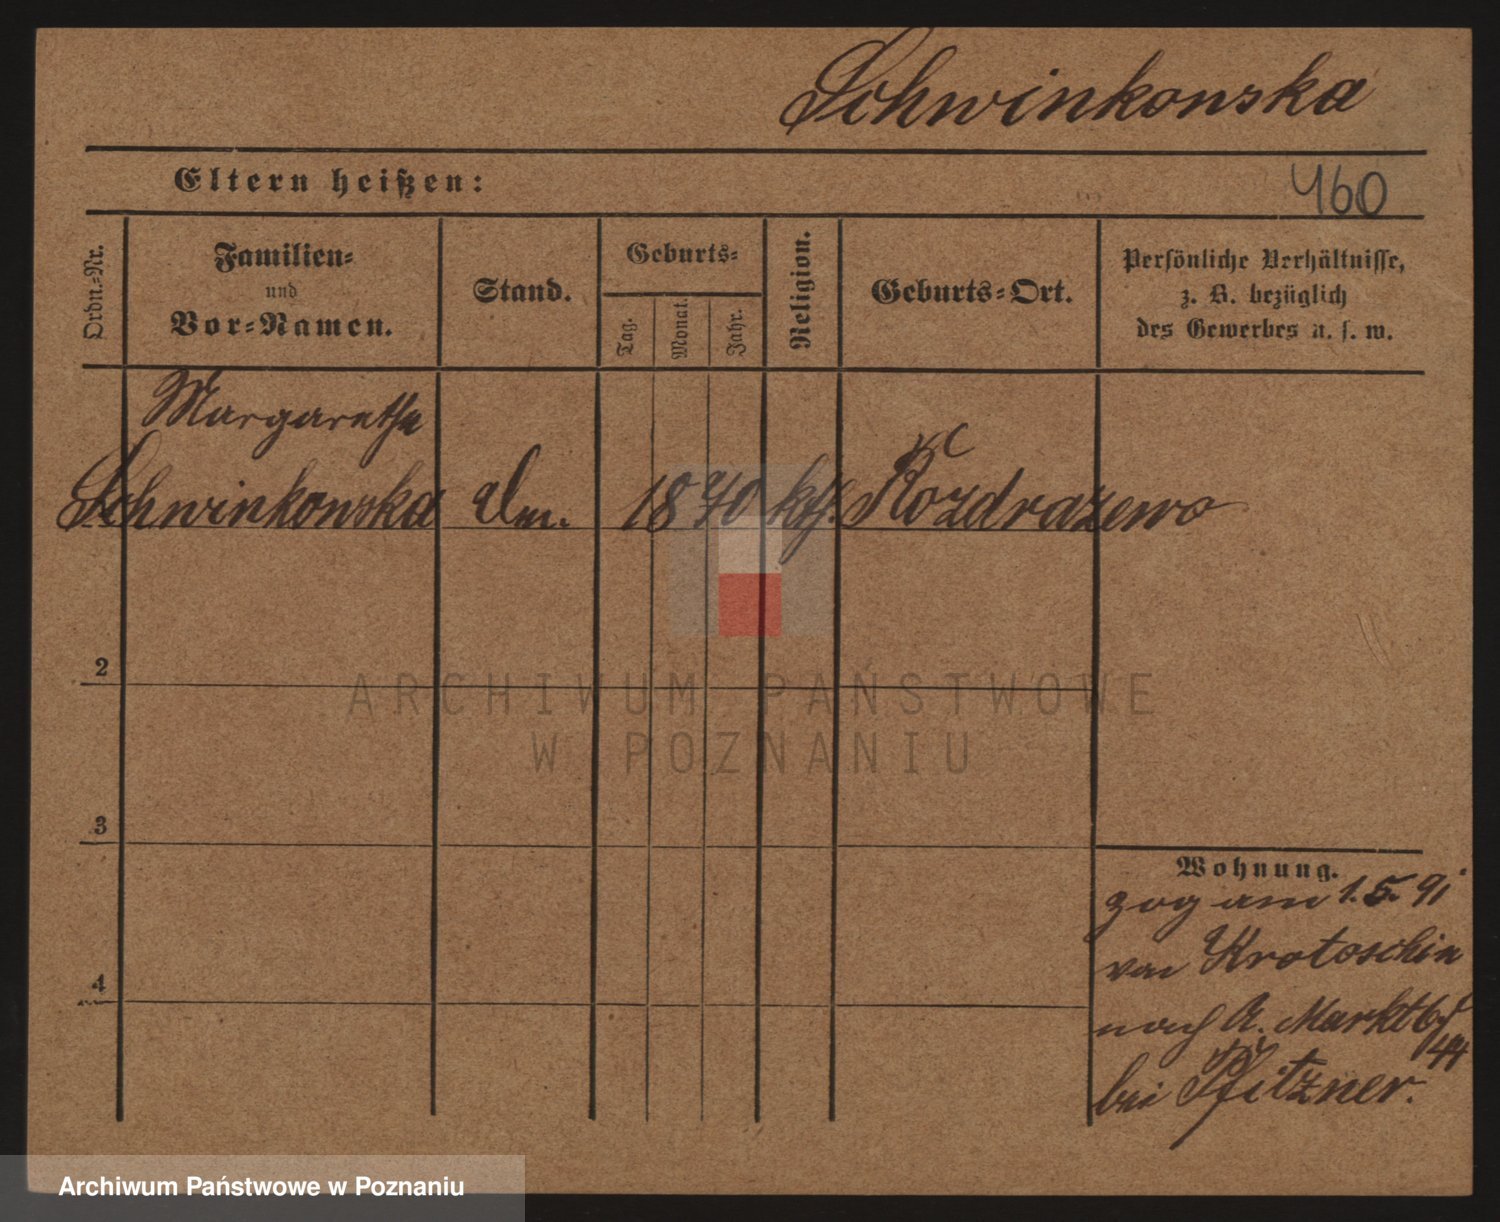 Schwinkowska
Eltern heißen:
460
Ordn.-Nr.
Familien-
und
Vor-Namen.
Stand.
Geburts-
Tag.
Monat.
Jahr.
Religion.
Geburts-Ort.
Persönliche Verhältnisse,
z. B. bezüglich
des Gewerbes u. s. w.
Margarethe
Schwinkowska
1870 kth. Kozdrazewo
2
3
4
Wohnung.
zog am 1.5.91
von Krotoschin
nach A. Markt
44
bei Pfitzner.
ARCHIWUM PAŃSTWOWE
W POZNANIU
Archiwum Państwowe w Poznaniu